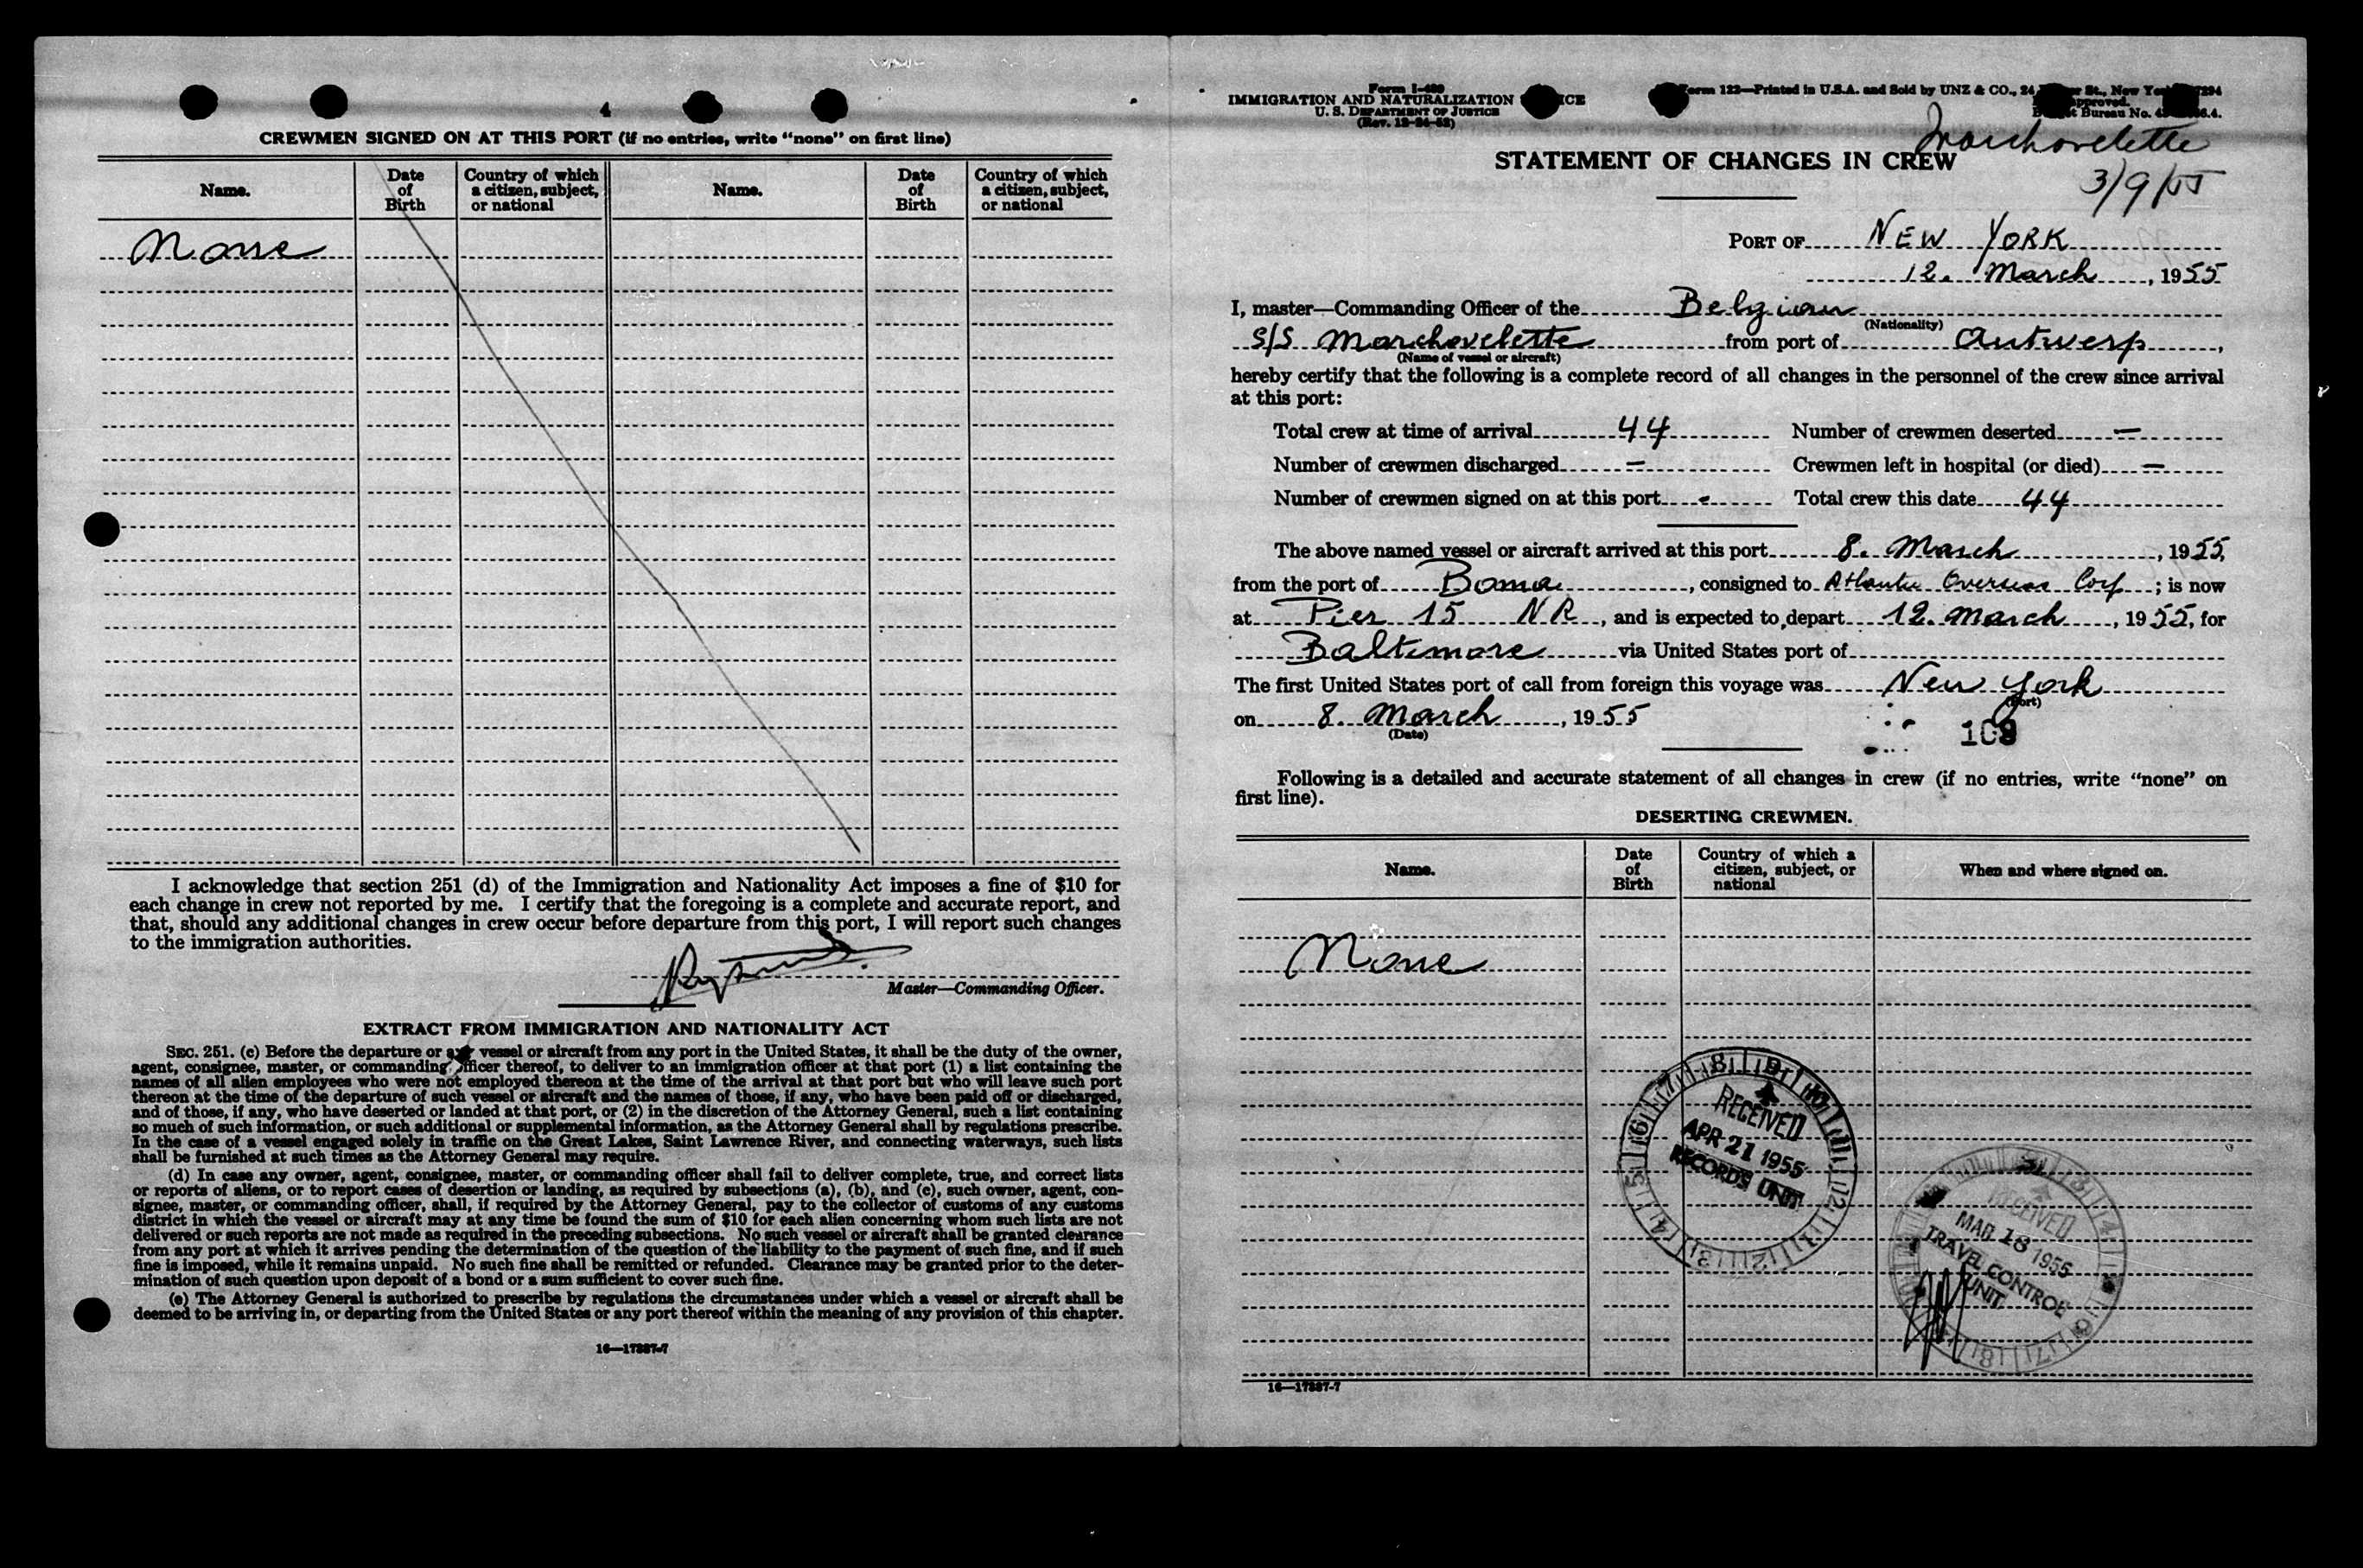 4
CREWMEN SIGNED ON AT THIS PORT (if no entries, write "none" on first line)
Name. Date of Birth Country of which a citizen, subject, or national Name. Date of Birth Country of which a citizen, subject, or national
None
I acknowledge that section 251 (d) of the Immigration and Nationality Act imposes a fine of $10 for
each change in crew not reported by me. I certify that the foregoing is a complete and accurate report, and
that, should any additional changes in crew occur before departure from this port, I will report such changes
to the immigration authorities.
Master—Commanding Officer.
EXTRACT FROM IMMIGRATION AND NATIONALITY ACT
SEC. 251. (c) Before the departure or any vessel or aircraft from any port in the United States, it shall be the duty of the owner,
agent, consignee, master, or commanding officer thereof, to deliver to an immigration officer at that port (1) a list containing the
names of all alien employees who were not employed thereon at the time of the arrival at that port but who will leave such port
thereon at the time of the departure of such vessel or aircraft and the names of those, if any, who have been paid off or discharged,
and of those, if any, who have deserted or landed at that port, or (2) in the discretion of the Attorney General, such a list containing
so much of such information, or such additional or supplemental information, as the Attorney General shall by regulations prescribe.
In the case of a vessel engaged solely in traffic on the Great Lakes, Saint Lawrence River, and connecting waterways, such lists
shall be furnished at such times as the Attorney General may require.
(d) In case any owner, agent, consignee, master, or commanding officer shall fail to deliver complete, true, and correct lists
or reports of aliens, or to report cases of desertion or landing, as required by subsections (a), (b), and (c), such owner, agent, con-
signee, master, or commanding officer, shall, if required by the Attorney General, pay to the collector of customs of any customs
district in which the vessel or aircraft may at any time be found the sum of $10 for each alien concerning whom such lists are not
delivered or such reports are not made as required in the preceding subsections. No such vessel or aircraft shall be granted clearance
from any port at which it arrives pending the determination of the question of the liability to the payment of such fine, and if such
fine is imposed, while it remains unpaid. No such fine shall be remitted or refunded. Clearance may be granted prior to the deter-
mination of such question upon deposit of a bond or a sum sufficient to cover such fine.
(e) The Attorney General is authorized to prescribe by regulations the circumstances under which a vessel or aircraft shall be
deemed to be arriving in, or departing from the United States or any port thereof within the meaning of any provision of this chapter.
16—17887-7
Form I-489
IMMIGRATION AND NATURALIZATION
U. S. DEPARTMENT OF JUSTICE
(Rev. 12-24-52)
Form 122—Printed in U.S.A. and Sold by UNZ & CO., 24 St., New
approved.
Bureau No.
Marchovelette
STATEMENT OF CHANGES IN CREW
3/9/55
PORT OF NEW YORK
12. March, 1955
I, master—Commanding Officer of the Belgian
(Nationality)
S/S Marchovelette from port of Antwerp,
(Name of vessel or aircraft)
hereby certify that the following is a complete record of all changes in the personnel of the crew since arrival
at this port:
Total crew at time of arrival 44 Number of crewmen deserted —
Number of crewmen discharged — Crewmen left in hospital (or died) —
Number of crewmen signed on at this port - Total crew this date 44
The above named vessel or aircraft arrived at this port 8. March, 1955,
from the port of Boma, consigned to Atlantic Overseas Corp; is now
at Pier 15 NR, and is expected to depart 12. March, 1955, for
Baltimore via United States port of
The first United States port of call from foreign this voyage was New York
(Port)
on 8. March, 1955
(Date)
109
Following is a detailed and accurate statement of all changes in crew (if no entries, write "none" on
first line).
DESERTING CREWMEN.
Name. Date of Birth Country of which a citizen, subject, or national When and where signed on.
None
RECEIVED
APR 21 1955
RECORDS UNIT
RECEIVED
MAR 18 1955
TRAVEL CONTROL
UNIT
16—17887-7